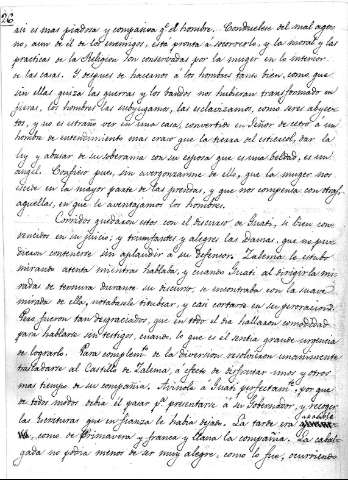 26
asi es mas piadosa y compasiva q.e el hombre. Conduelese del mal age-
no, aun de el de los enemigos, esta pronta á socorrerlo, y la moral y las
practicas de la Religion son conservadas por la muger en lo interior
de las casas. Y despues de hacernos á los hombres tanto bien, como que
sin ellas quiza las guerras y los bandos nos hubieran transformado en
fieras, los hombres las subyugamos, las esclavizamos, como seres abyec-
tos, y no es estraño ver en una casa, convertido en Señor de cetro á un
hombre de entendimiento mas craso que la tierra del estiercol, dar la
ley y abusar de su soberania con su esposa que es una beldad, es un
angel. Confieso pues, sin avergonzarme de ello, que la muger nos
escede en la mayor parte de las prendas, y que nos compensa con otras,
aquellas, en que le aventajamos los hombres.
Corridos quedaron estos con el discurso de Guati, si bien con-
vencidos en su juicio, y triunfantes y alegres las Damas, que no pu-
dieron contenerse sin aplaudir á su defensor. Zalema le estubo
mirando atenta mientras hablaba, y cuando Guati al dirigirla mi-
rada de ternura durante su discurso, se encontraba con la suave
mirada de ella, notabasele titubear, y casi cortarse en su peroracion.
Mas fueron tan desgraciados, que en todo el dia hallaron comodidad
para hablarse sin testigos, cuando, lo que es él sentia grande urgencia
de lograrlo. Para complem.to de la diversion resolvieron unanimemente
trasladarse al Castillo de Zalema, á efecto de disfrutar unos y otros
mas tiempo de su compañia. Avinole á Guati perfectam.te, por que
de todos modos debia el pasar p.a presentarse á su Gobernador, y recoger
las escrituras que en fianza le habia dejado. La tarde era
como de Primavera y franca y llana la compañia. La cabal-
gada no podria menos de ser muy alegre, como lo fue, ocurriendo